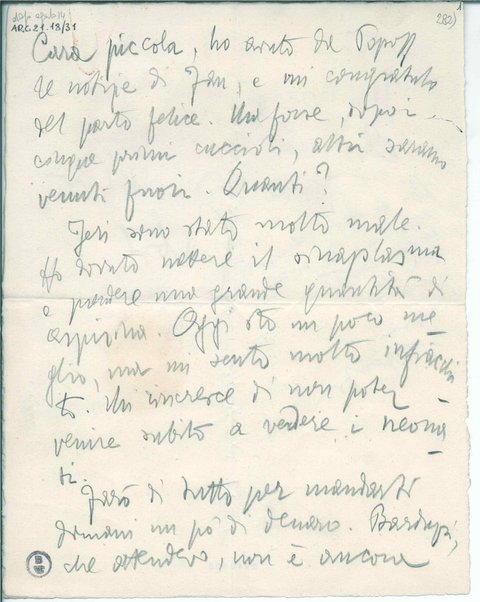 ARC.21.18/31
282)
Cara piccola, ho avuto da Popoff
le notizie di Fan, e mi congratulo
del parto felice. Ma forse, dopo i
cinque primi cuccioli, altri saranno
venuti fuori. Quanti?
Jeri sono stato molto male.
Ho dovuto mettere il sinaplasma
e prendere una grande quantità di
aspirina. Oggi sto un poco me-
glio, ma mi sento molto infiacchi-
to. Mi incresce di non poter
venire subito a vedere i neona-
ti.
Farò di tutto per mandarti
domani un pò di denaro.
che attendevo, non è ancora